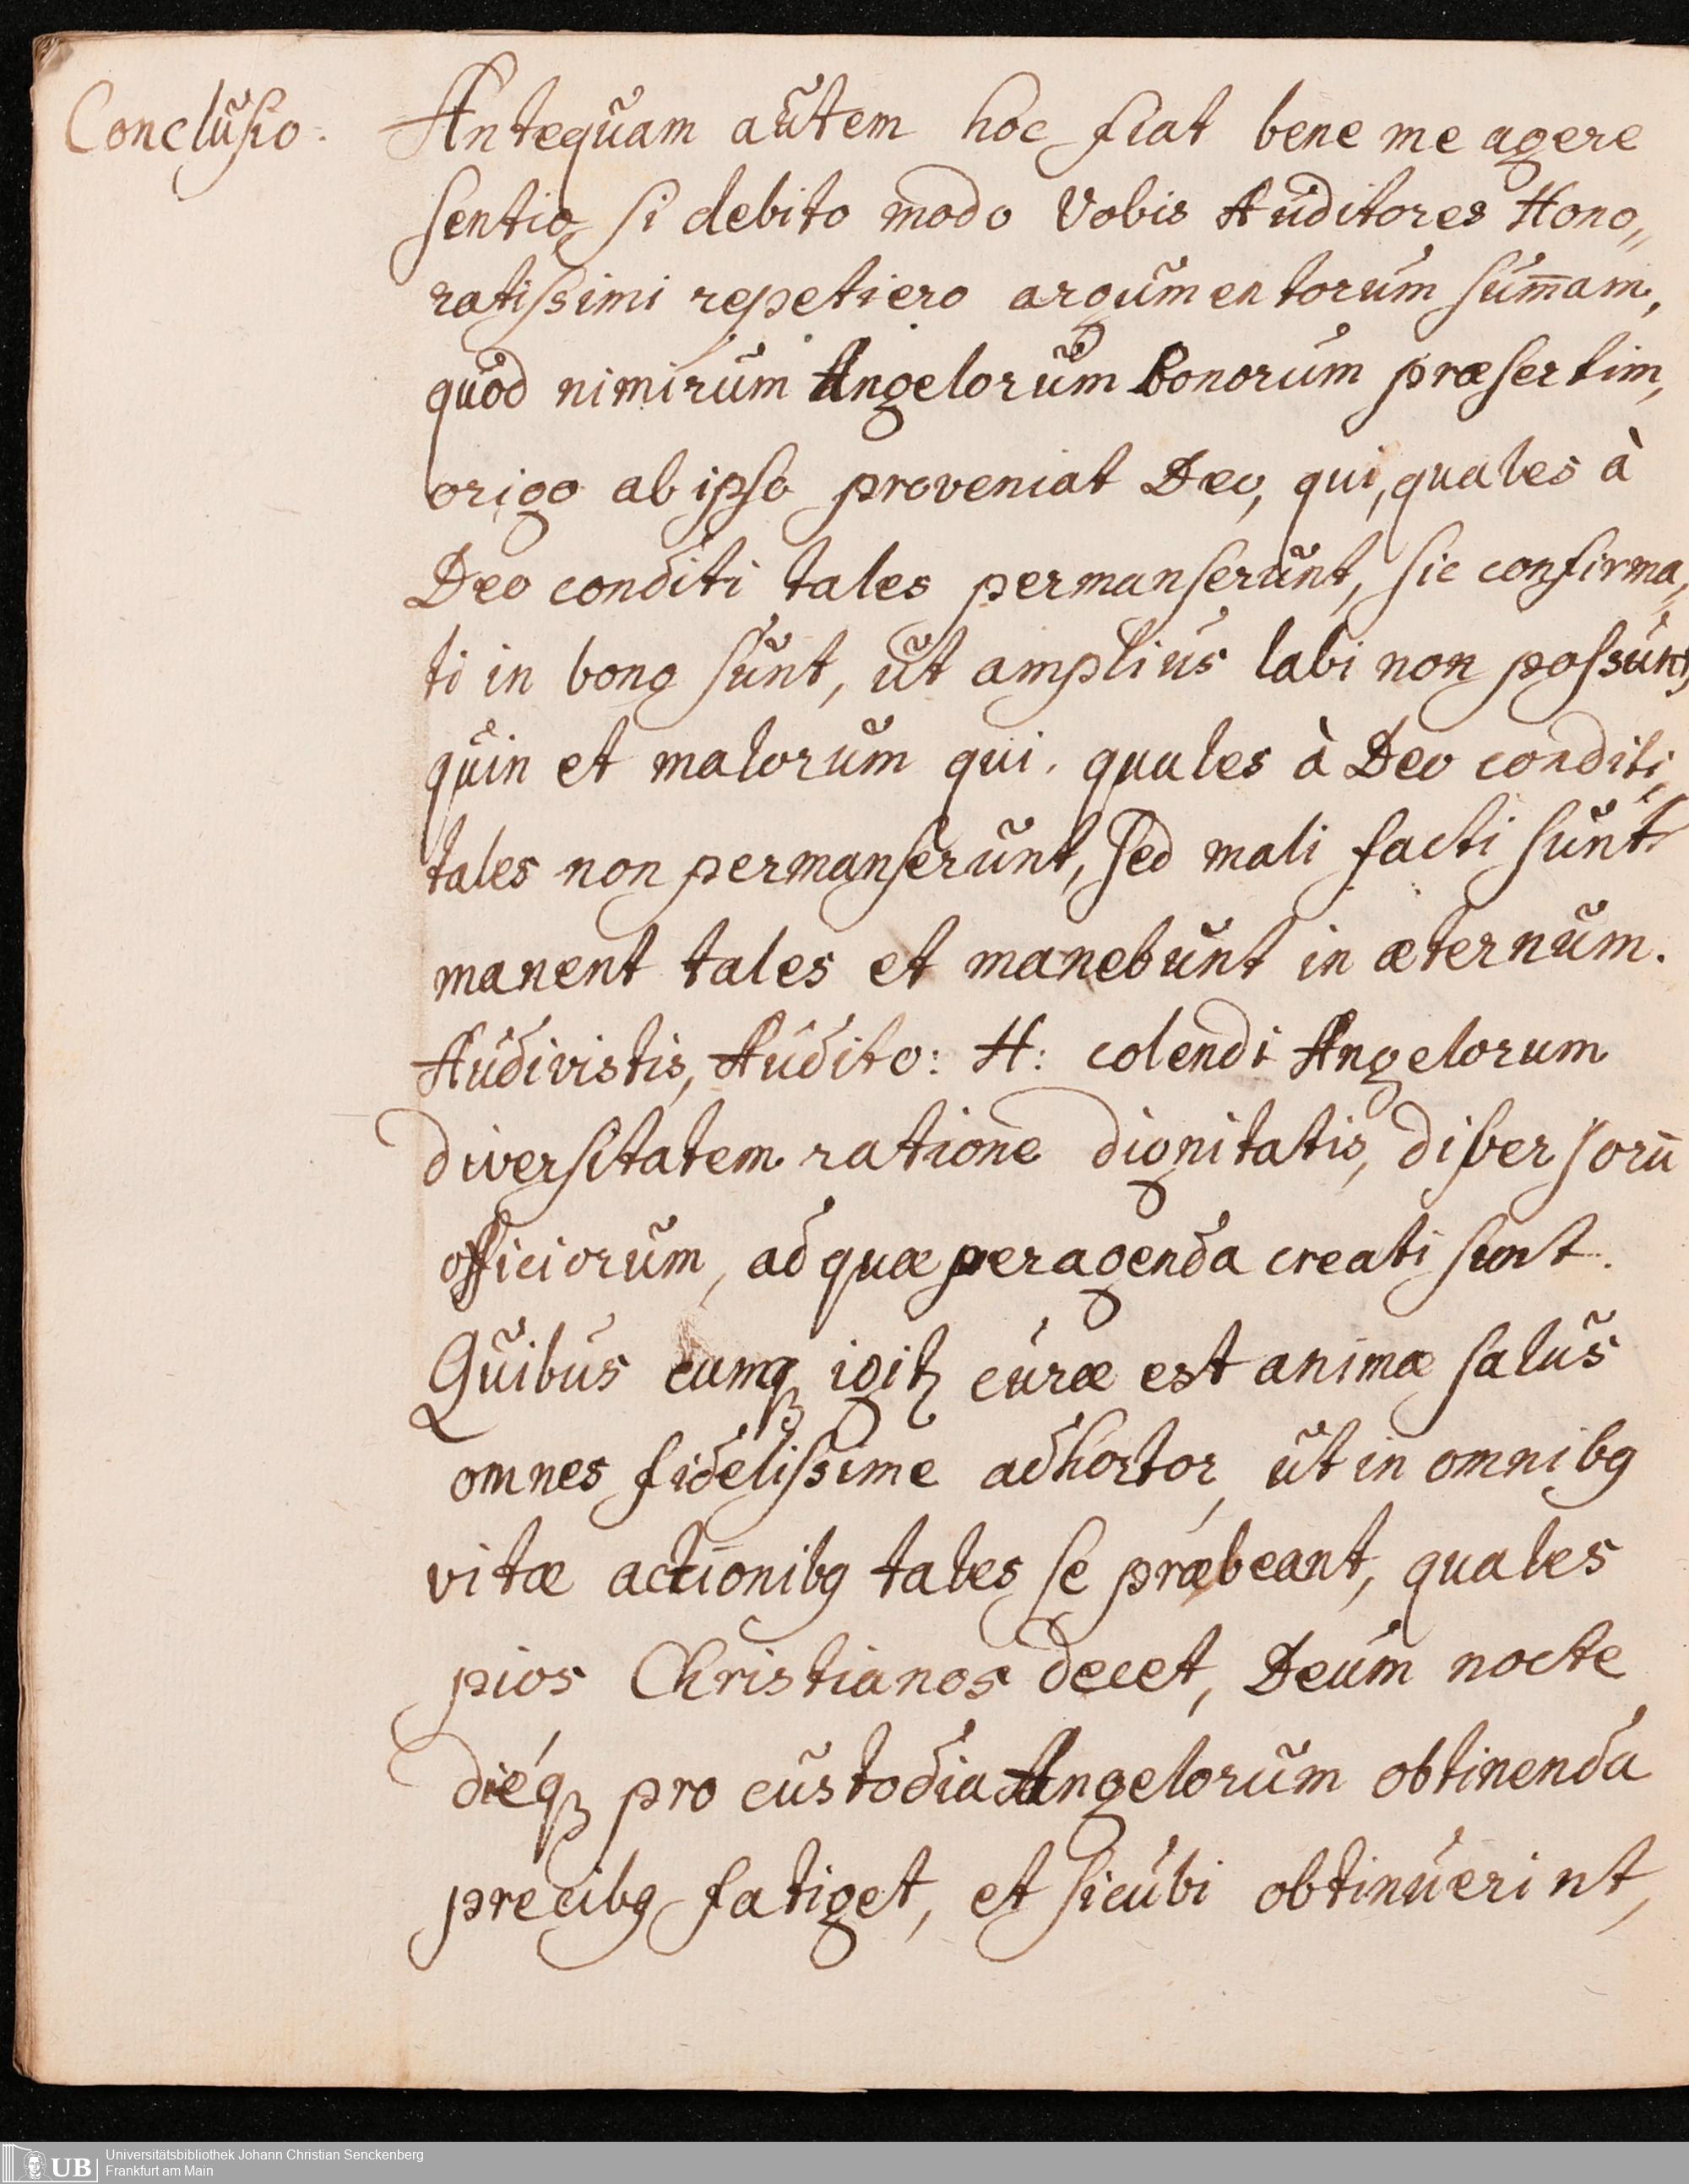 Conclusio.
Antequam autem hoc fiat bene me agere
sentio si debito modo Vobis Auditores Hono„
ratissimi repetiero argumentorum sum̄am,
quod nimirum Angelorum Bonorum præsertim,
origo ab ipso proveniat Deo, qui, quales à
Deo conditi tales permanserunt, sic confirma„
ti in bono sunt, ut amplius labi non possunt,
quin et malorum qui, quales à Deo conditi,
tales non permanserunt, sed mali facti sunt
manent tales et manebunt in æternum.
Audivistis, Audito: H: colendi Angelorum
diversitatem ratione dignitatis, diversorū
officiorum, ad quæ peragenda creati sunt.
Quibus cumqꝫ igitꝭ curæ est animæ salus
omnes fidelissime adhortor, ut in omnibꝯ
vitæ actionibꝯ tales se præbeant, quales
pios Christianos decet, Deum nocte
diéqꝫ pro custodia Angelorum obtinenda
precibꝯ fatiget, et sicubi obtinuerint,
UB Universitätsbibliothek Johann Christian Senckenberg
Frankfurt am Main